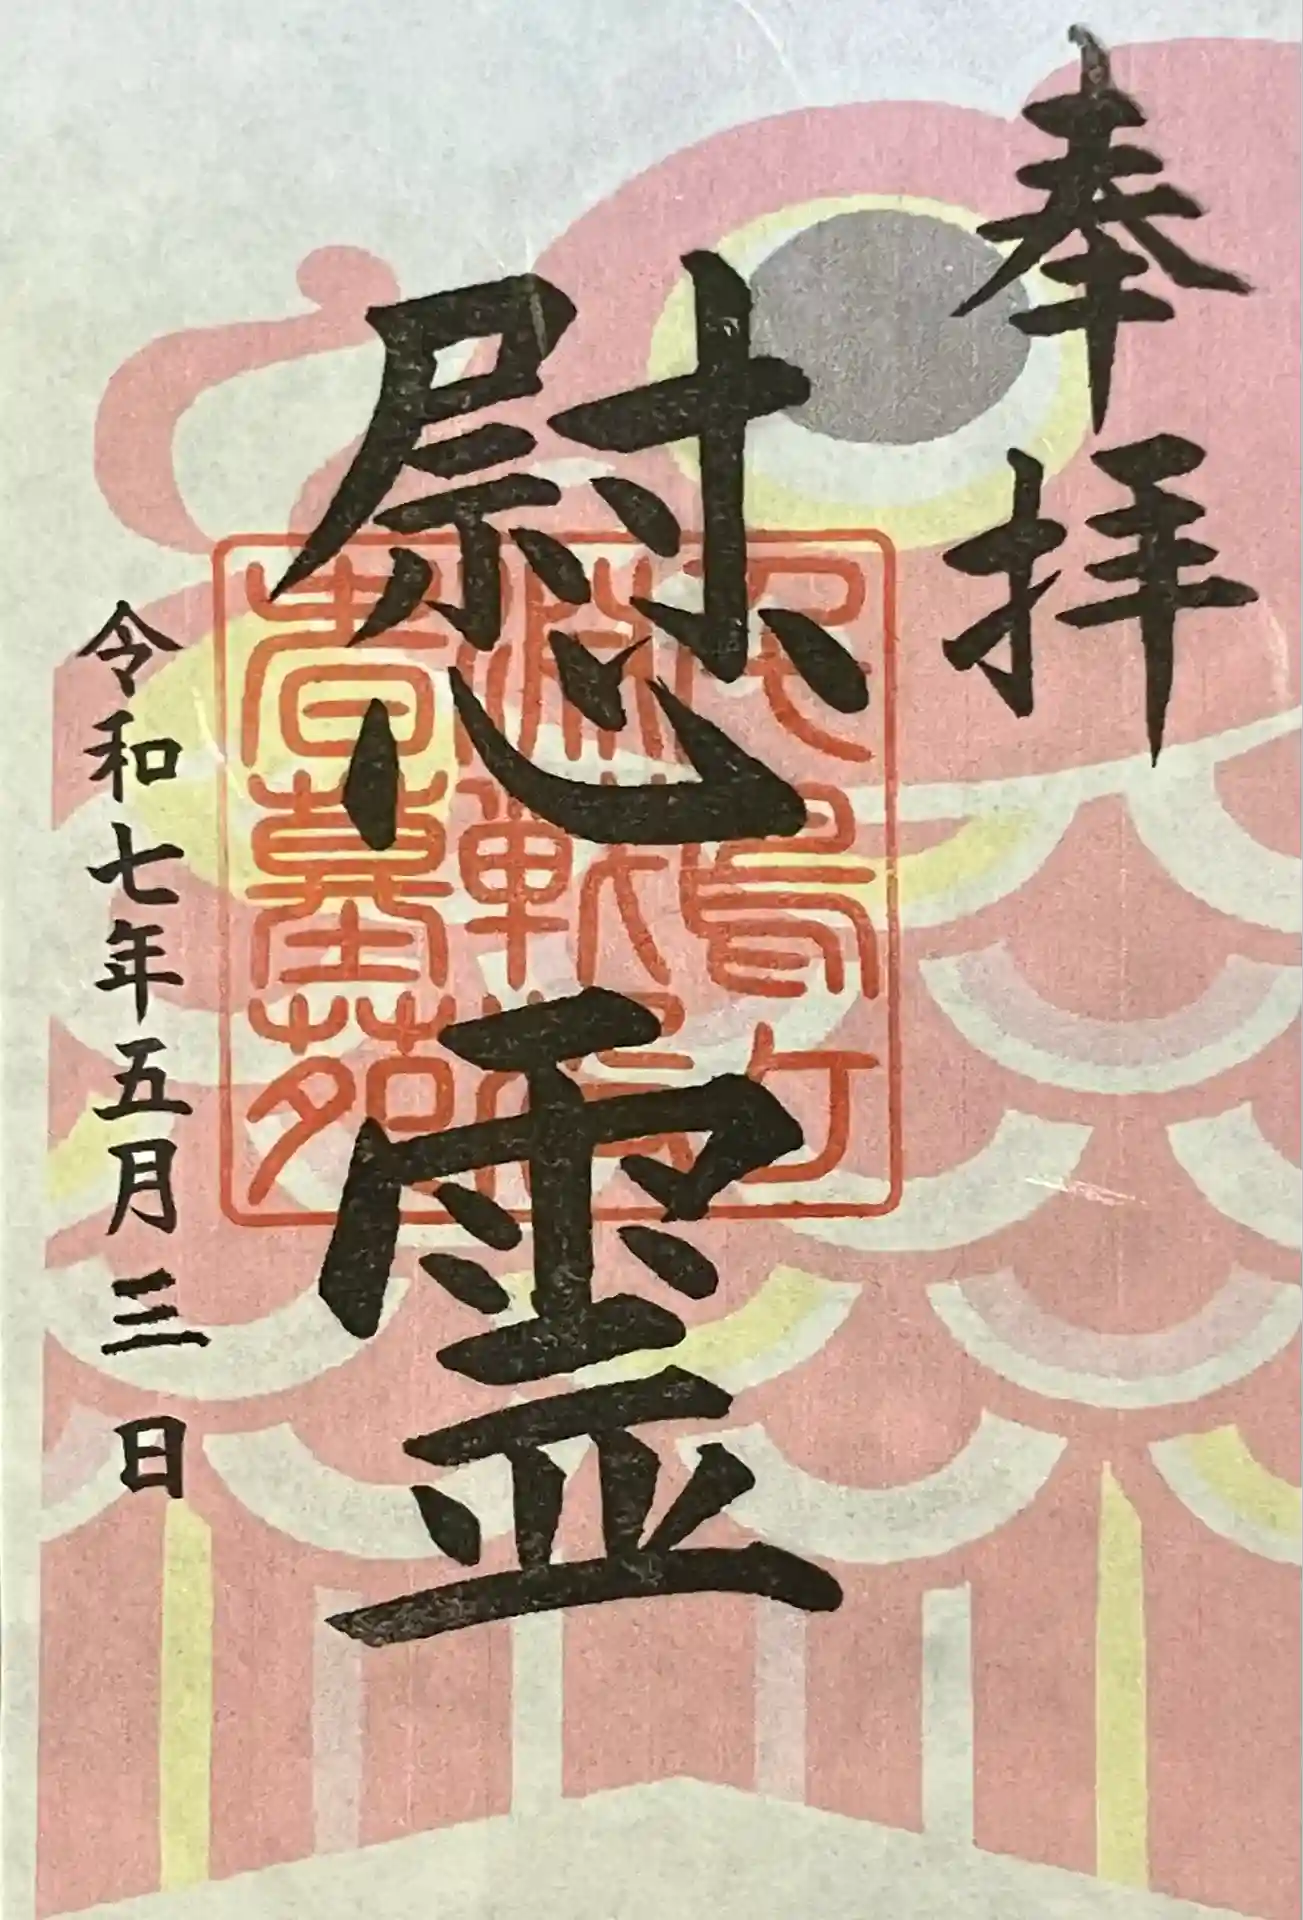 奉拝
慰霊
令和七年五月三日